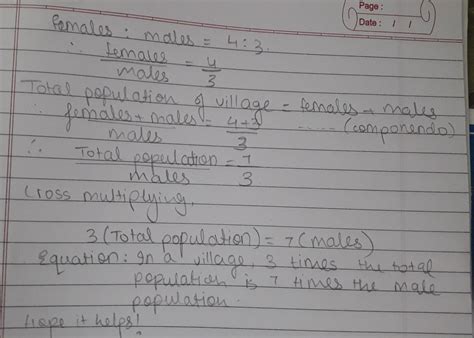 Page :
Date : / /
Females : males = 4 : 3.
∴ females/males = 4/3
Total population of village = females + males
∴ females + males/males = 4+3/3 ..... (componendo)
∴ Total population/males = 7/3
Cross multiplying,
3 (Total population) = 7 (males)
Equation: In a village, 3 times the total
population is 7 times the male
population.
Hope it helps!